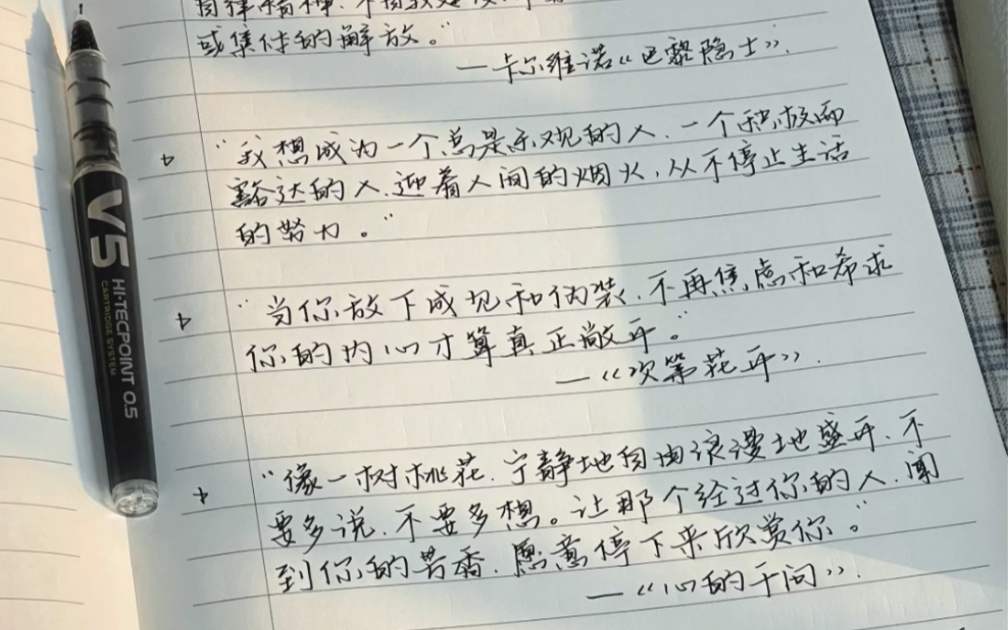 自律精神.不
或集体的解放。”
—卡尔维诺《巴黎隐士》.
“我想成为一个总是乐观的人.一个积极而
豁达的人.迎着人间的烟火.从不停止生活
的努力。”
“当你放下成见和伪装.不再焦虑和希求
你的内心才算真正敞开。”
—《次第花开》.
“像一树桃花.宁静地自由浪漫地盛开.不
要多说.不要多想。让那个经过你的人.闻
到你的芳香.愿意停下来欣赏你。”
—《心的千问》.
V5
HI-TECPOINT 0.5
CARTRIDGE SYSTEM